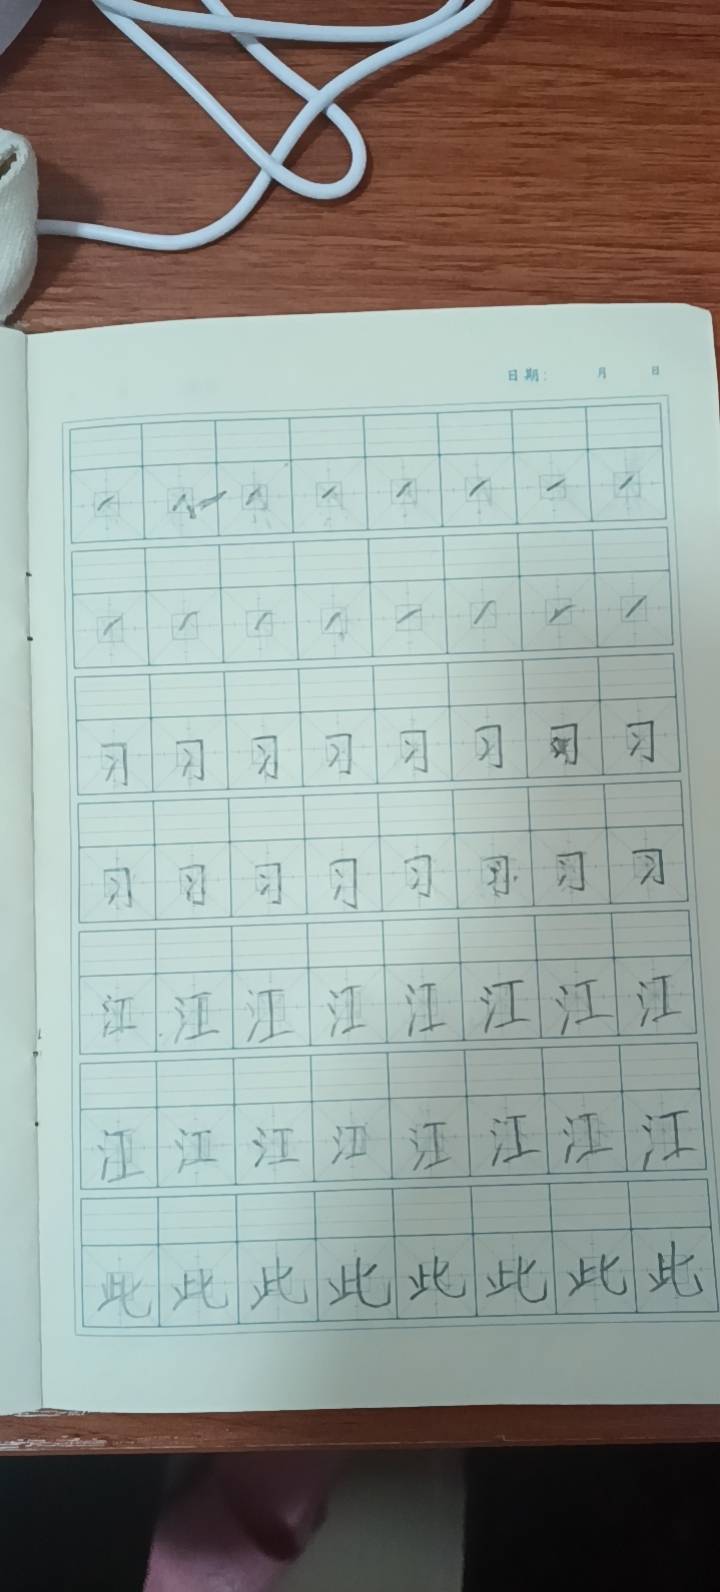 日期： 月 日
习 习 习 习 习 习 习 习
习 习 习 习 习 习 习 习
江 江 江 江 江 江 江 江
江 江 江 江 江 江 江 江
此 此 此 此 此 此 此 此